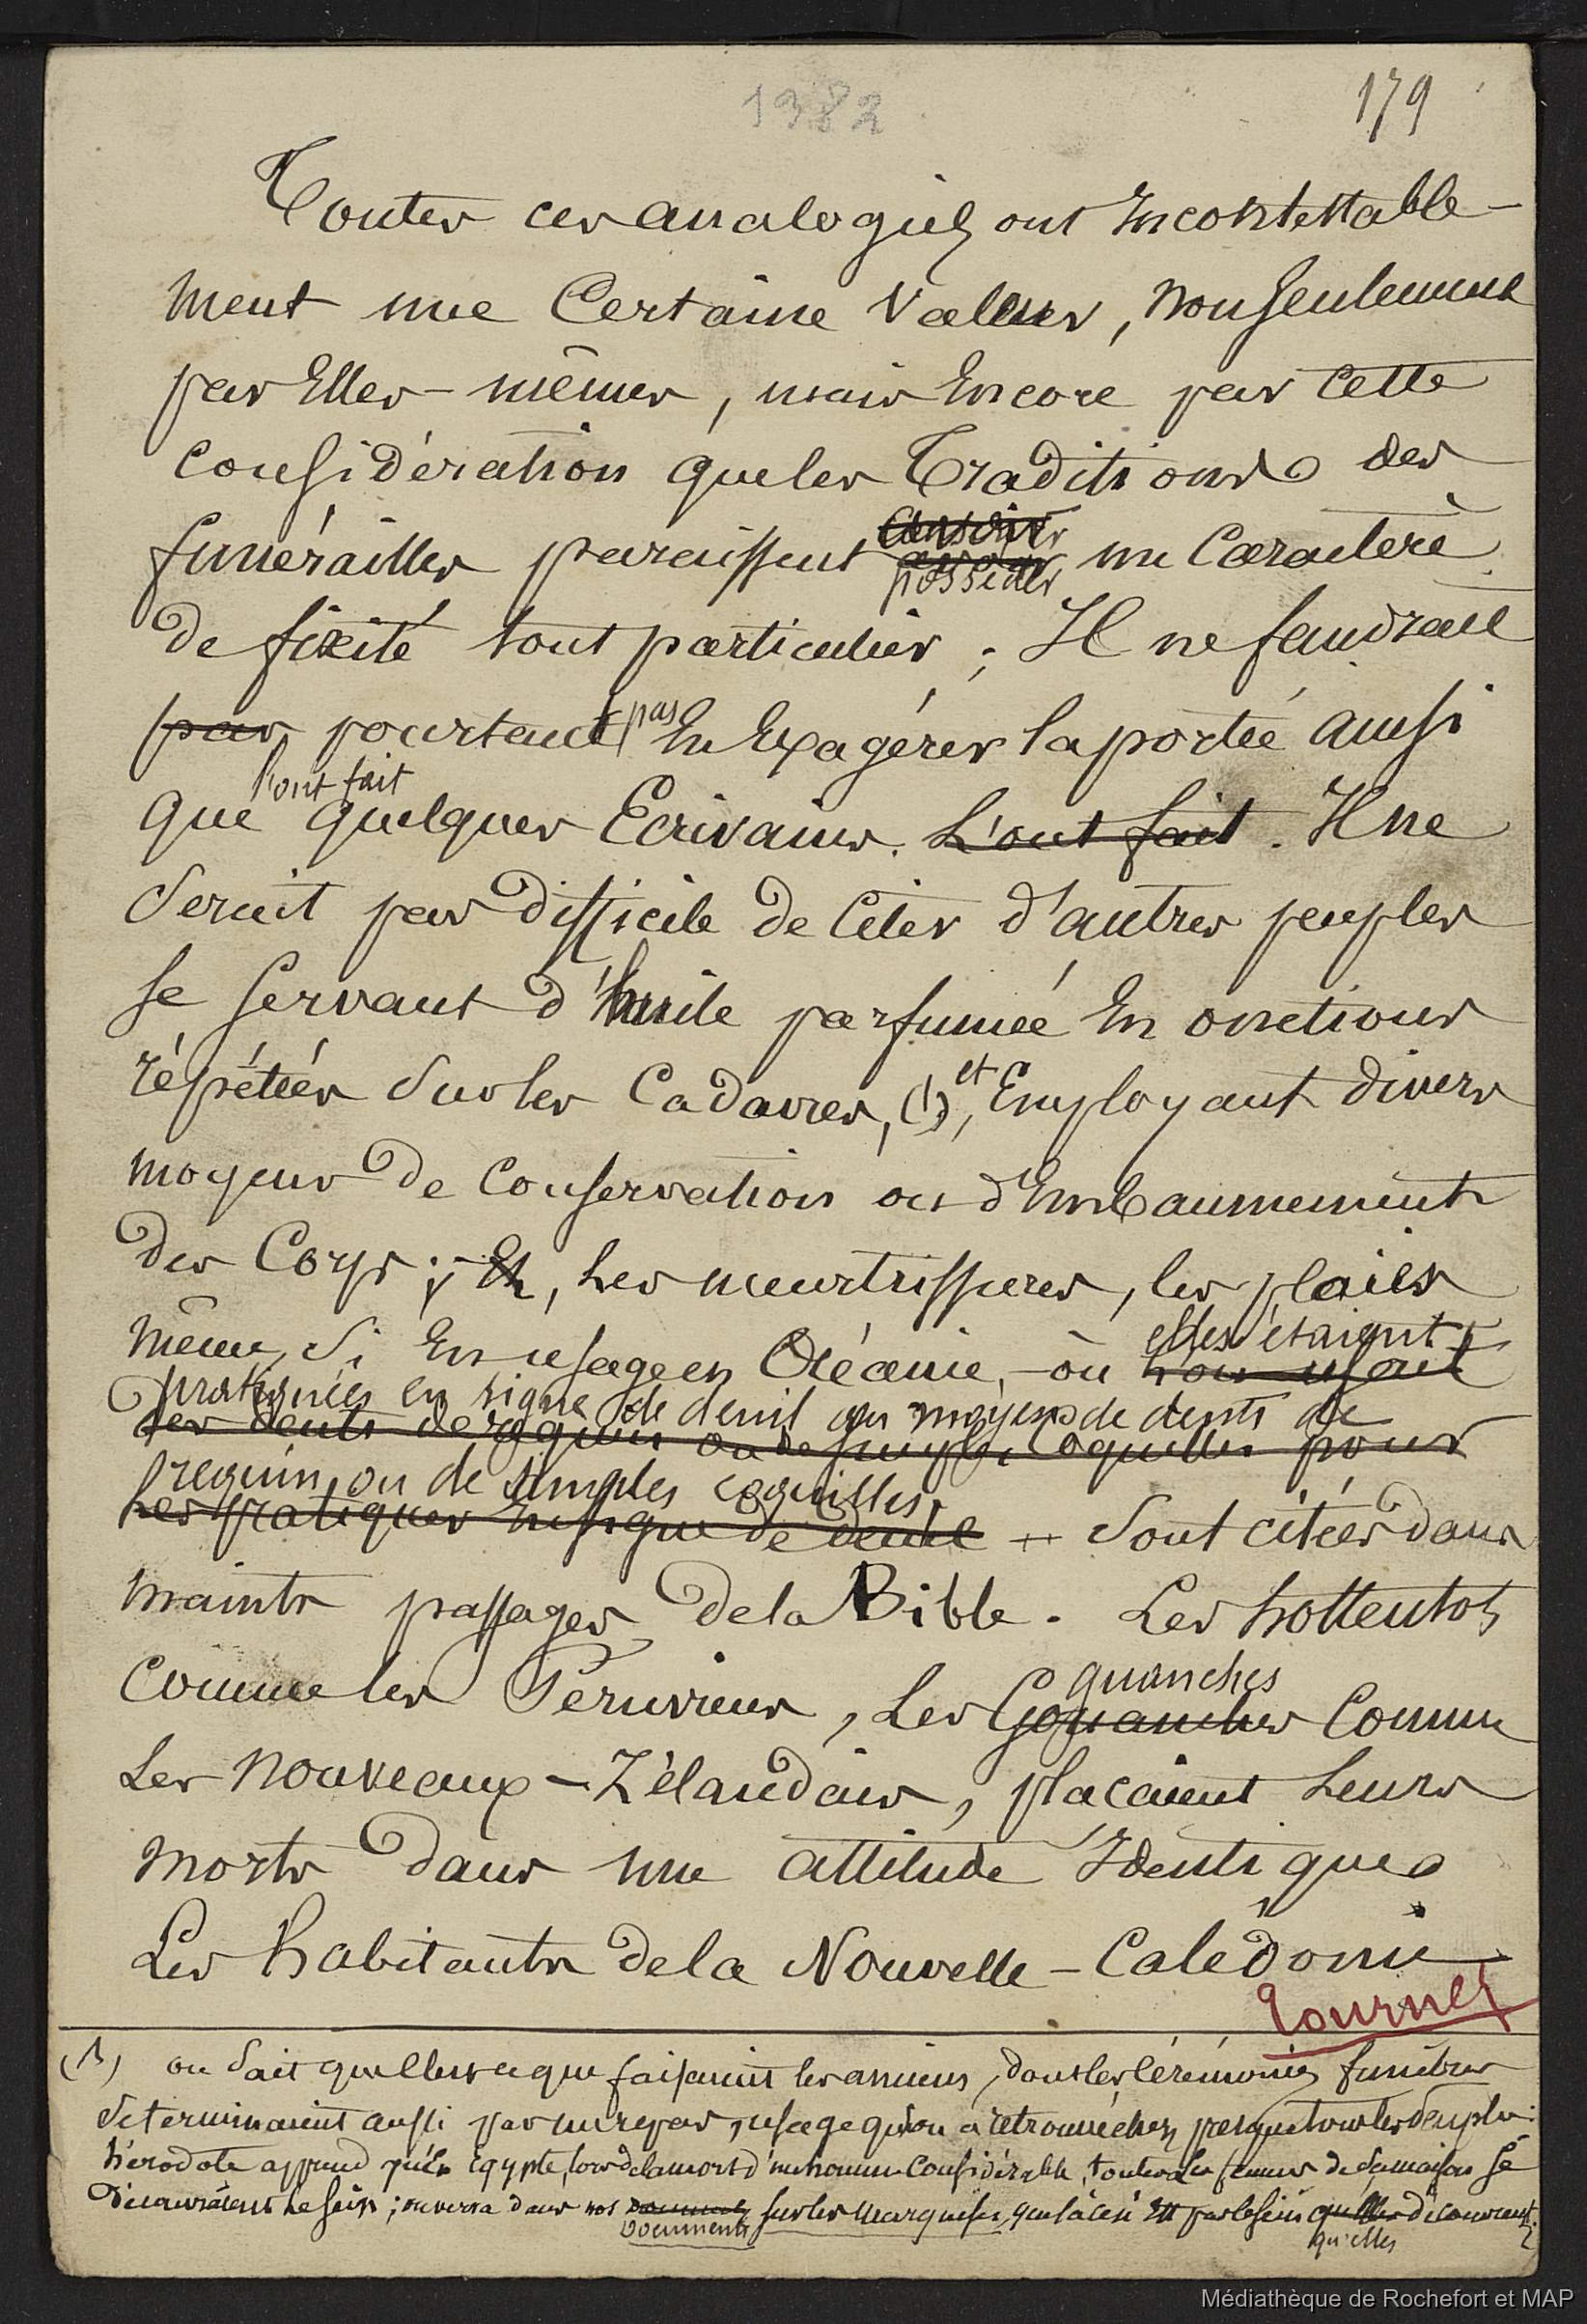 1382
179
Toutes ces analogies ont incontestable-
ment une certaine valeur, non seulement
par Elles-mêmes, mais Encore par cette
considération que les Traditions des
funérailles paraissent possèder un caractère
de fixité tout particulier; Il ne faudrait
pas pourtant pas En Exagérer la portée ainsi
que l'ont fait quelques Ecrivains. L'ont fait. Il ne
serait pas difficile de citer d'autres peuples
se servant d'huile parfumée En onctions
répétées sur les cadavres, (1), et Employant divers
moyens de conservation ou d'Embaumements
des Corps; Et, Les meurtrissures, les plaies
même, si En usage en Océanie, - où elles étaient
l'on usait
pratiquées en signe de deuil au moyen de dents de
des dents de requin ou de simples coquilles pour
requin, ou de simples coquilles,
les pratiquer En signe de deuil - sont citées dans
maints passages de la Bible. Les hottentots
comme les Péruviens, Les Gouanches guanches comme
Les Nouveaux-Zélandais, plaçaient Leurs
morts dans une attitude Identique
Les habitants de la Nouvelle-Calédonie
Tournez
(1) on sait que les anciens, dont les cérémonies funèbres
se terminaient aussi par un repas, usage qu'on a retrouvé chez presque tous les peuples:
hérodote apprend qu'En Egypte, lors de la mort d'un homme considérable, toutes les femmes de sa maison se
découvraient le sein; on verra dans nos documents sur les marquises, que là c'est par le sein qu'elles découvrent.